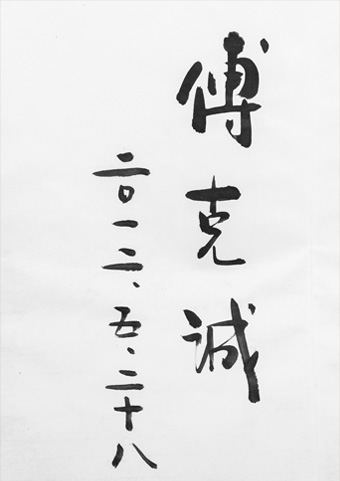 傅克诚
二〇一二、五、二十八